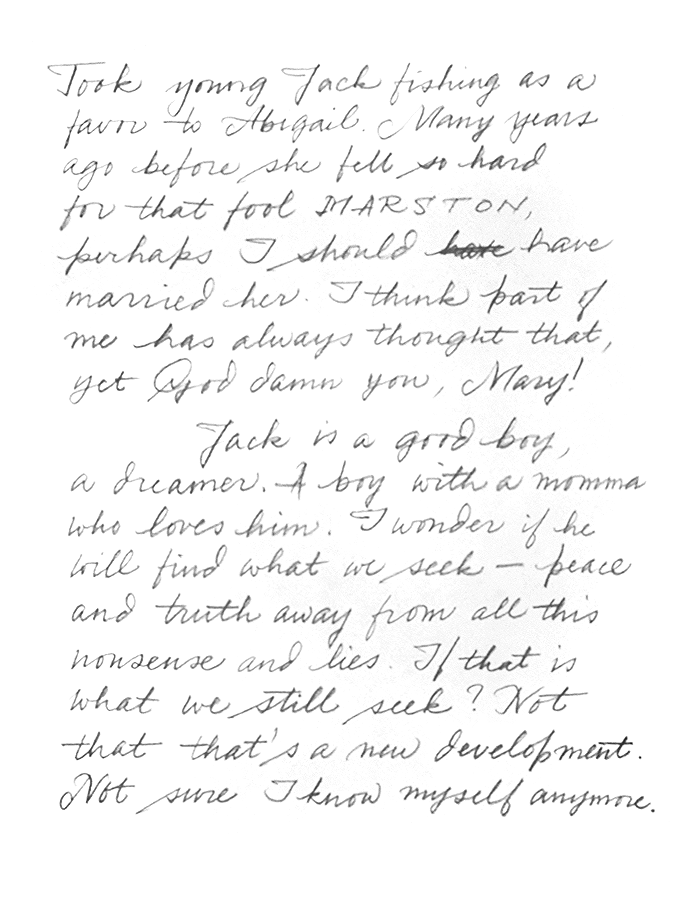 Took young Jack fishing as a
favor to Abigail. Many years
ago before she fell so hard
for that fool MARSTON,
perhaps I should have have
married her. I think part of
me has always thought that,
yet God damn you, Mary!
Jack is a good boy,
a dreamer. A boy with a momma
who loves him. I wonder if he
will find what we seek — peace
and truth away from all this
nonsense and lies. If that is
what we still seek? Not
that that's a new development.
Not sure I know myself anymore.